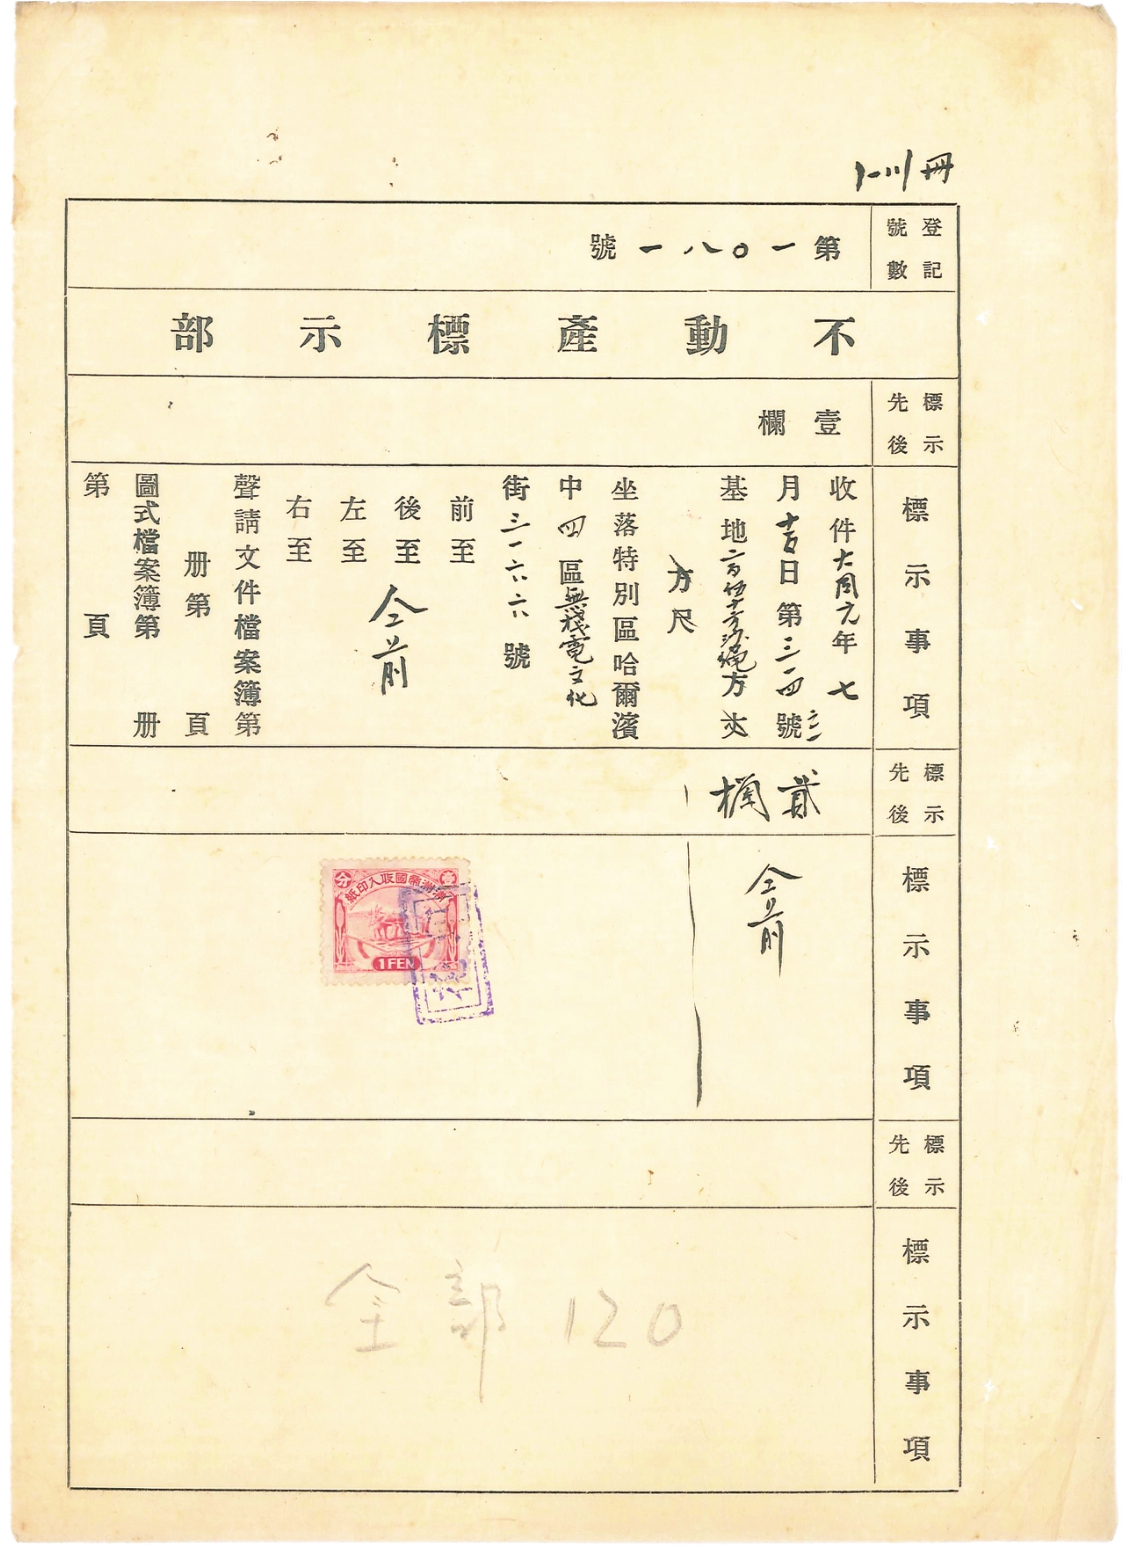 冊
登記號數
第一〇八一號
不動產標示部
標示先後
壹欄
標示事項
收件大同元年七
月十六日第三一四號
基地方丈
方尺
坐落特別區哈爾濱
中四區無綫電文化
街三一六六號
前至
後至 仝前
左至
右至
聲請文件檔案簿第
册第頁
圖式檔案簿第册
第頁
標示先後
貳欄
標示事項
仝前
滿洲帝國收入印紙
壹分
1 FEN
標示先後
標示事項
全部 120